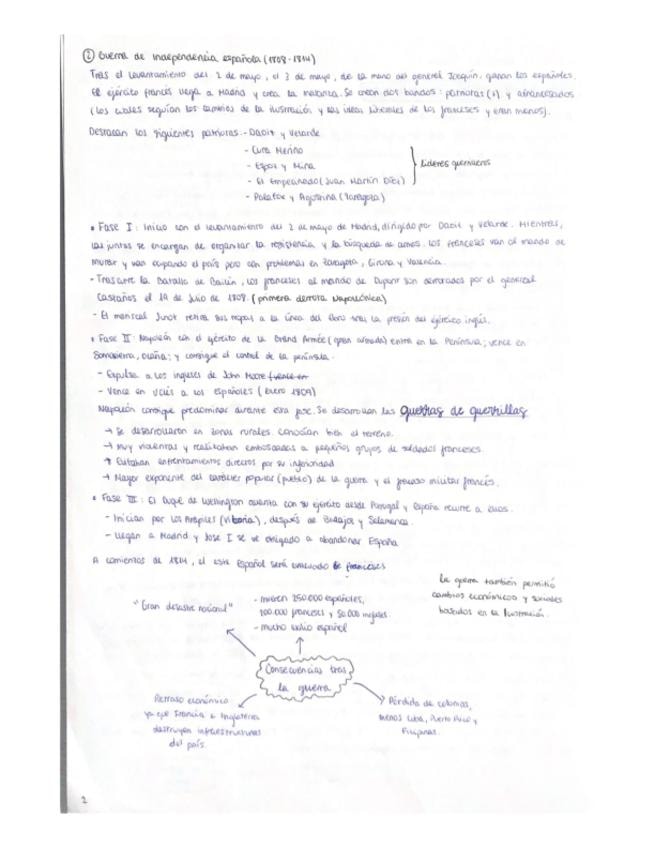 ② Guerra de independencia española (1808-1814)
Tras el levantamiento del 2 de mayo, el 3 de mayo, de la mano del general Joaquín, ganan los españoles.
El ejército francés llega a Madrid y crea la matanza. Se crean dos bandos: patriotas (+) y afrancesados
(los cuales seguían los cambios de la ilustración y las ideas liberales de los franceses y eran menos).
Destacan los siguientes patriotas: - Daoiz y Velarde
- Cura Merino
- Espoz y Mina
- El Empecinado (Juan Martín Díez)
Líderes guerrilleros
- Palafox y Agustina (Zaragoza)
• Fase I: Inicio con el levantamiento del 2 de mayo de Madrid, dirigido por Daoiz y Velarde. Mientras,
las juntas se encargan de organizar la resistencia y la búsqueda de armas. Los franceses van al mando de
Murat y van ocupando el país pero con problemas en Zaragoza, Girona y Valencia.
- Tras la Batalla de Bailén, los franceses al mando de Dupont son derrotados por el general
Castaños el 19 de Julio de 1808. (primera derrota Napoleónica)
- El mariscal Junot retira sus tropas a la línea del Ebro tras la presión del ejército inglés.
• Fase II: Napoleón con el ejército de la Grand Armée (gran armada) entra en la Península; vence en
Somosierra, Ocaña; y consigue el control de la península.
- Expulsa a los ingleses de John Moore
- Vence en Uclés a los españoles (Enero 1809)
Napoleón consigue predominar durante esta fase. Se desarrollan las guerras de guerrillas
→ Se desarrollaron en zonas rurales. Conocían bien el terreno.
→ Muy violentas y realizaban emboscadas a pequeños grupos de soldados franceses.
→ Evitaban enfrentamientos directos por su inferioridad
→ Mayor exponente del carácter popular (pueblo) de la guerra y el fracaso militar francés.
• Fase III: El Duque de Wellington avanza con su ejército desde Portugal y España recurre a ellos.
- Inician por los Arapiles (Vitoria), después de Badajoz y Salamanca.
- Llegan a Madrid y Jose I se ve obligado a abandonar España
A comienzos de 1814, el este Español será franceses
La guerra también permitió
cambios económicos y sociales
basados en la Ilustración.
"Gran desastre nacional"
- mueren 250.000 españoles,
200.000 franceses y 50.000 ingleses.
- mucho exilio español
Consecuencias tras
la guerra
Retraso económico
ya que Francia e Inglaterra
destruyen infraestructuras
del país.
Pérdida de colonias,
menos Cuba, Puerto Rico y
Filipinas.
2